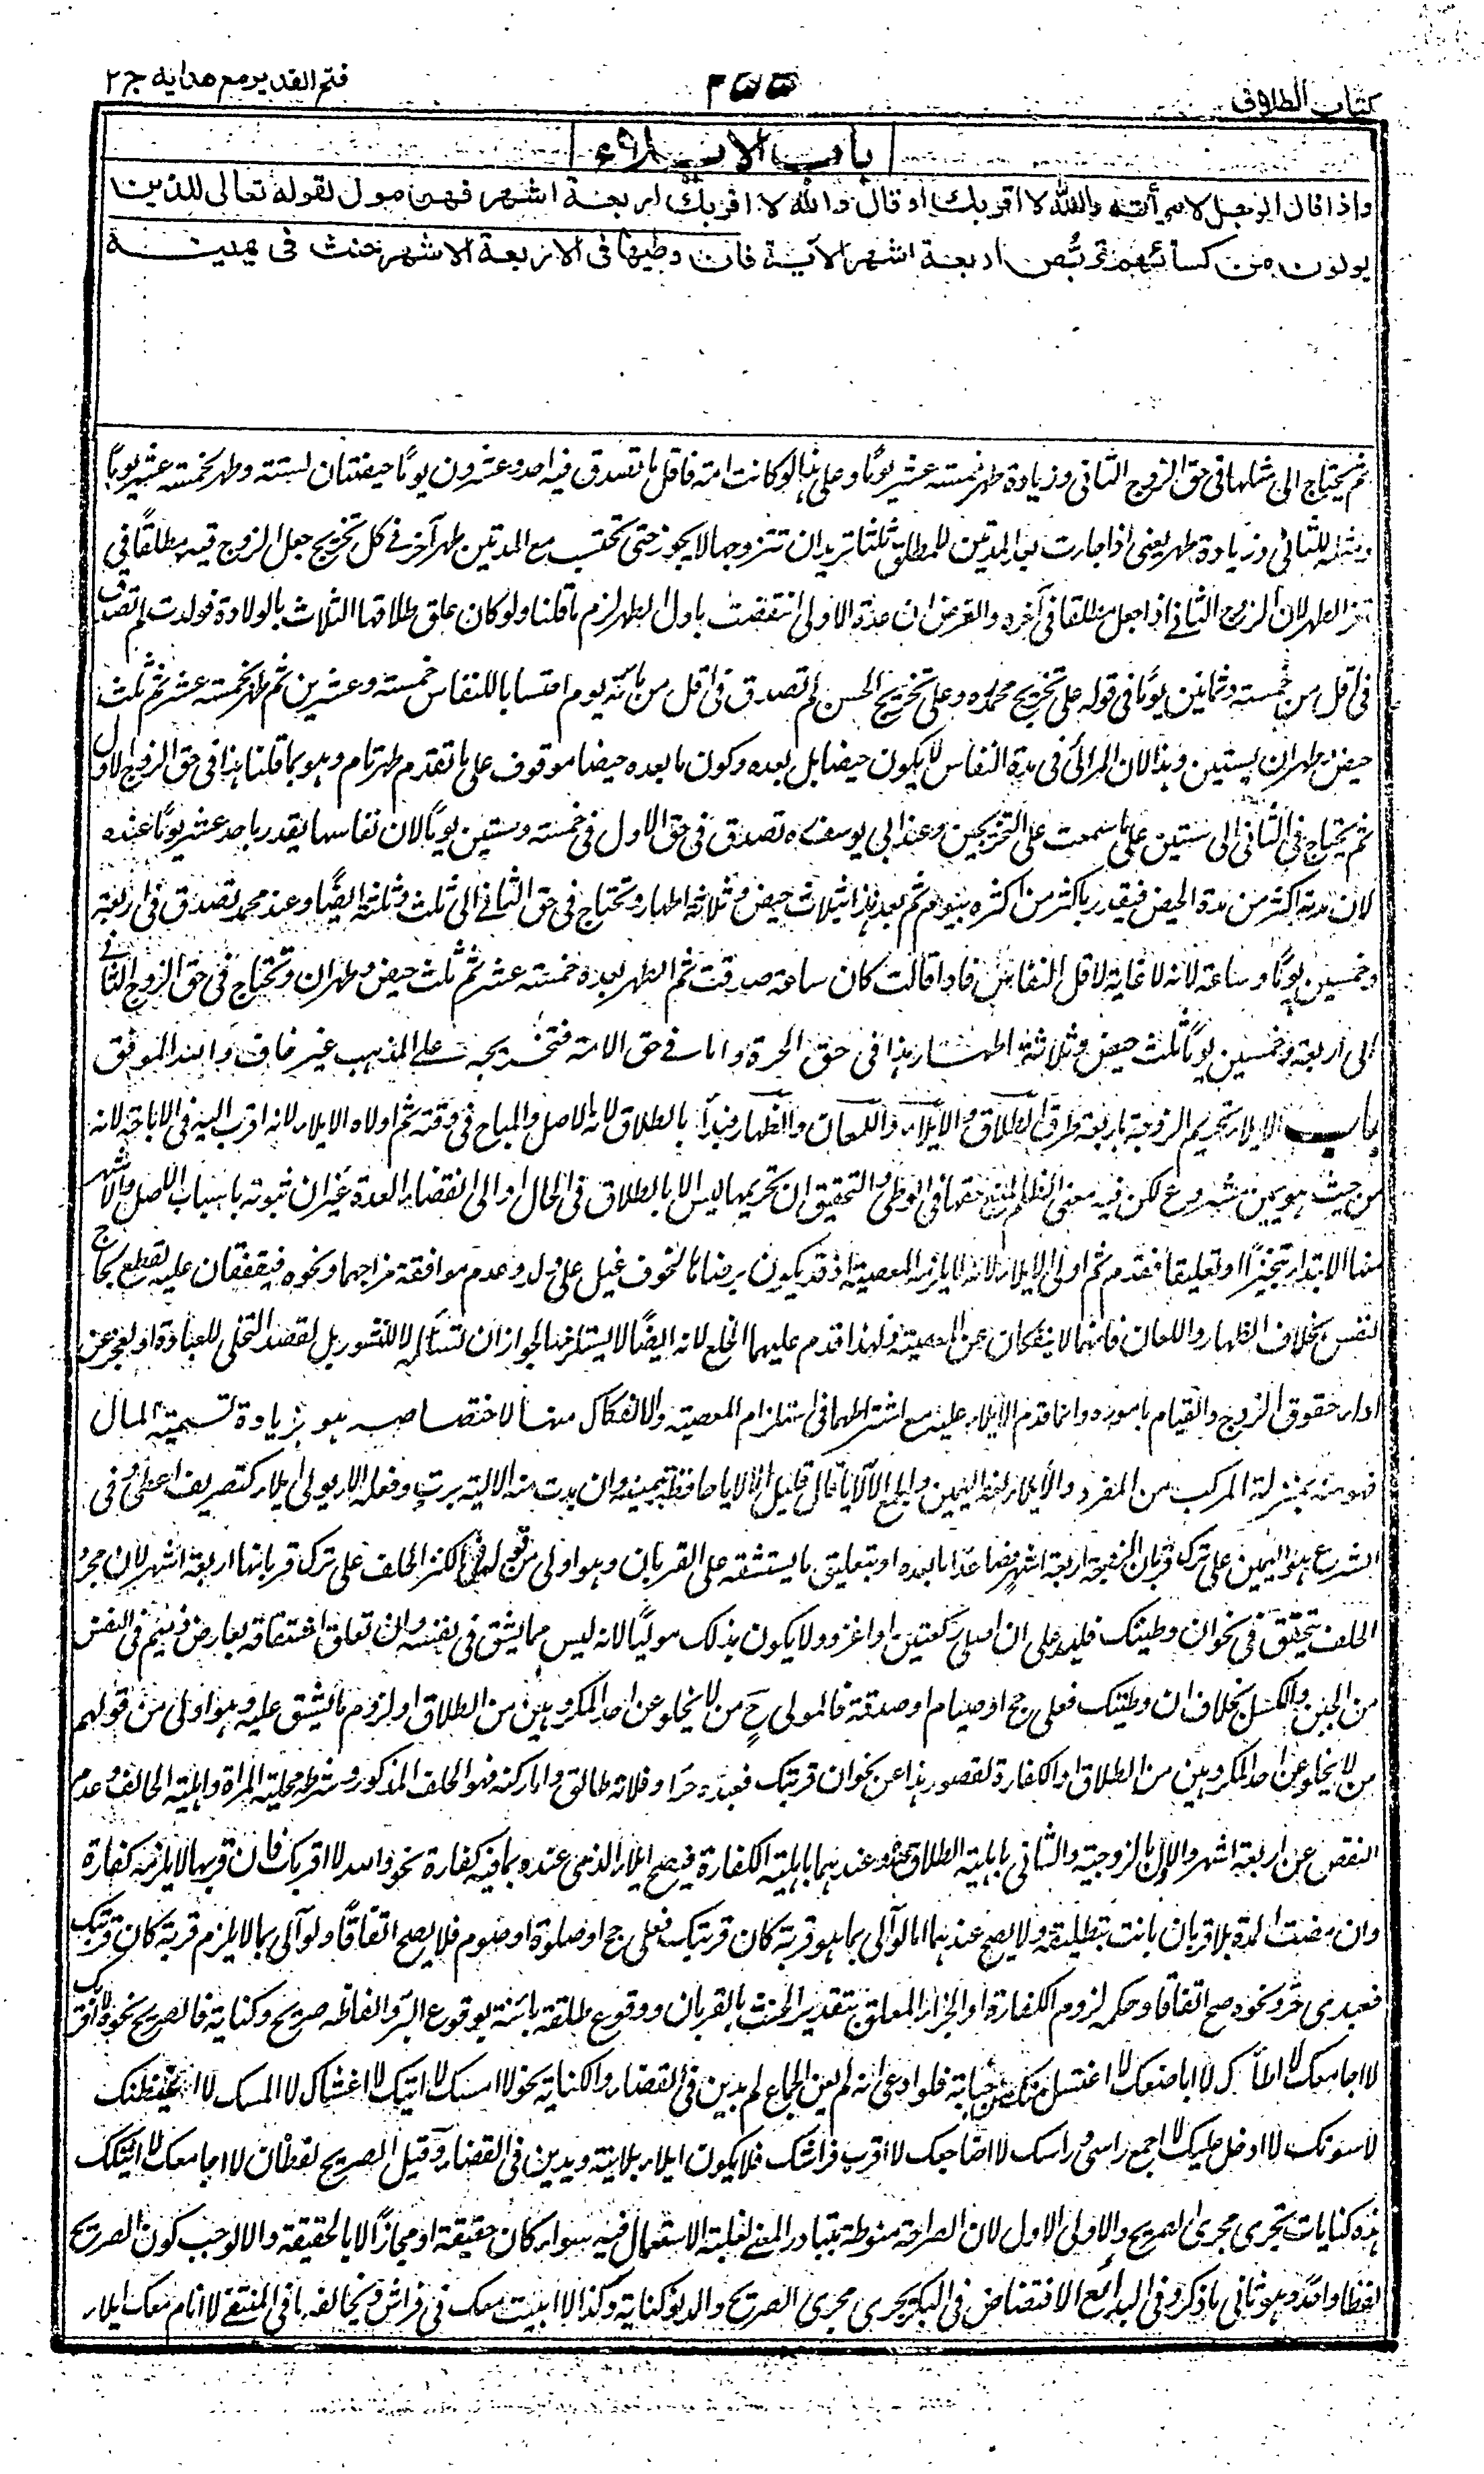 كتاب الطلاق
٢٥٥
فتح القدير مع هدايه ج ٢
باب الايلاء
واذا قال الرجل لامرأته والله لا اقربك او قال والله لا اقربك اربعة اشهر فهو مول لقوله تعالى للذين
يولون من نسائهم تربص اربعة اشهر الآية فان وطيها فى الاربعة الاشهر حنث فى يمينه
ثم يحتاج الى مثلها فى حق الزوج الثانى وزيادة طهر خمسة عشر يوما وعلى هذا لو كانت امة فاقل ما تصدق فيه احد وعشرون يوما حيضتان بستة وطهر خمسة عشر يوما
ومثله للثانى وزيادة طهر يعنى اذا جاءت بعد المدتين للمطلق ثلثا تريد ان تتزوجها لا يجوز حتى تحتسب مع المدتين طهر آخر فى كل تخريج جعل الزوج فيه مطلقا فى
آخر الطهر لان الزوج الثانى اذا جعل مطلقا فى آخره والفرض ان عدة الاولى انقضت باول الطهر لزم ما قلنا ولو كان علق طلاقها الثلاث بالولادة فولدت لم تصدق
فى اقل من خمسة وثمانين يوما فى قوله على تخريج محمد ره وعلى تخريج الحسن لم تصدق فى اقل من مائة يوم احتسابا للنفاس خمسة وعشرين ثم طهر خمسة عشر ثم ثلث
حيض وطهران بستين وهذا لان المرائى فى مدة النفاس لا يكون حيضا بل بعده وكون ما بعده حيضا موقوف على ما تقدم طهر تام وهو بما قلنا هذا فى حق الزوج الاول
ثم يحتاج فى الثانى الى ستين على ما سمعت على التخريجين وعند ابى يوسف ره تصدق فى حق الاول فى خمسة وستين يوما لان نفاسها يقدر باحد عشر يوما عنده
لان مدته اكثر من مدة الحيض فيقدر باكثر من اكثره بيوم ثم بعد هذا ثلاث حيض وثلاثة اطهار وتحتاج فى حق الثانى الى ثلث وثلثة ايضا وعند محمد تصدق فى اربعة
وخمسين يوما وساعة لانه لا غاية لاقل النفاس فاذا قالت كان ساعة صدقت ثم الطهر بعده خمسة عشر ثم ثلث حيض وطهران وتحتاج فى حق الزوج الثانى
الى اربعة وخمسين يوما ثلث حيض وثلاثة اطهار هذا فى حق الحرة واما فى حق الامة فتخريجه على المذهب غير خاف والله الموفق
باب الايلاء تحريم الزوجة باربعة طرق الطلاق والايلاء واللعان والظهار فبدأ بالطلاق لانه الاصل والمباح فى وقته ثم اولاه الايلاء لانه اقرب اليه فى الاباحة لانه
من حيث هو يمين مشروع لكن فيه معنى الظلم لمنع حقها فى الوطى والتحقيق ان تحريمها ليس الا بالطلاق فى الحال او الى انقضاء العدة غير ان ثبوته باسباب الاصل والاشهر
منها الابتداء تنجيزا او تعليقا فقدمه ثم اولى الايلاء لانه لا يلزمه المعصية اذ قد يكون برضاها لخوف غيل على ولد وعدم موافقة مزاجهما ونحوه فيتفقان عليه لقطع لجاج
النفس بخلاف الظهار واللعان فانهما لا ينفكان عن المعصية ولهذا قدم عليهما الخلع لانه ايضا لا يستلزمها لجواز ان تسأله لا للنشوز بل لقصد التخلى للعبادة او لعجز عن
اداء حقوق الزوج والقيام باموره وانما قدم الايلاء عليه مع اشتراكهما فى استلزام المعصية والانفكاك منها لاختصاصه هو بزيادة تسمية المال
فهو منه بمنزلة المركب من المفرد والايلاء لغة اليمين والجمع الالايا قال قليل الالايا حافظ ليمينه وان بدت منه الالية برت وفعله آلى يولى ايلاء كتصريف اعطى وفى
الشرع هو اليمين على ترك قربان الزوجة اربعة اشهر فصاعدا بالله او بتعليق ما يستشقه على القربان وهو اولى من قول الكنز الحلف على ترك قربانها اربعة اشهر لان مجرد
الحلف يتحقق فى نحو ان وطيتك فلله على ان اصلى ركعتين او اغزو ولا يكون بذلك موليا لانه ليس مما يشق فى نفسه وان تعلق اشتقاقه بعارض ذميم فى النفس
من الجبن والكسل بخلاف ان وطيتك فعلى حج او صيام او صدقة فالمولى ح من لا يخلو عن احد المكروهين من الطلاق او لزوم ما يشق عليه وهو اولى من قولهم
من لا يخلو عن احد المكروهين من الطلاق او الكفارة لقصور هذا عن نحو ان قربتك فعبده حر او فلانة طالق واما ركنه فهو الحلف المذكور وشرطه محلية المرأة واهلية الحالف وعدم
النقص عن اربعة اشهر والاول بالزوجية والثانى باهلية الطلاق عنده وعندهما باهلية الكفارة فيصح ايلاء الذمى عنده بما فيه كفارة نحو والله لا اقربك فان قربها لا يلزمه كفارة
وان مضت المدة بلا قربان بانت بتطليقة ولا يصح عندهما اما لو آلى بما هو قربة كان قربتك فعلى حج او صلوة او صوم فلا يصح اتفاقا ولو آلى بما لا يلزم قربة كان قربتك
فعبدى حر ونحوه صح اتفاقا وحكمه لزوم الكفارة او الجزاء المعلق بتقدير الحنث بالقربان ووقوع طلقة بائنة بوقوع البر والفاظه صريح وكناية فالصريح نحو لا اقربك
لا اجامعك لا اطأك لا اباضعك لا اغتسل منك من جنابة فلو ادعى انه لم يعن الجماع لم يدين فى القضاء والكناية نحو لا امسك لا آتيك لا اغشاك لا المسك لا اغيظنك
لاسوئنك لا ادخل عليك لا اجمع راسى وراسك لا اضاجعك لا اقرب فراشك فلا يكون ايلاء بلا نية ويدين فى القضاء وقيل الصريح لفظان لا اجامعك لا انيكك
هذه كنايات تجرى مجرى الصريح والاولى الاول لان الصراحة منوطة بتبادر المعنى لغلبة الاستعمال فيه سواء كان حقيقة او مجازا لا بالحقيقة والا لوجب كون الصريح
لفظا واحدا وهو ثانى ما ذكر وفى البدائع الافتضاض فى البكر يجرى مجرى الصريح والدنو كناية وكذا لا ابيت معك فى فراش ويخالفه ما فى المنتقى لا انام معك ايلاء